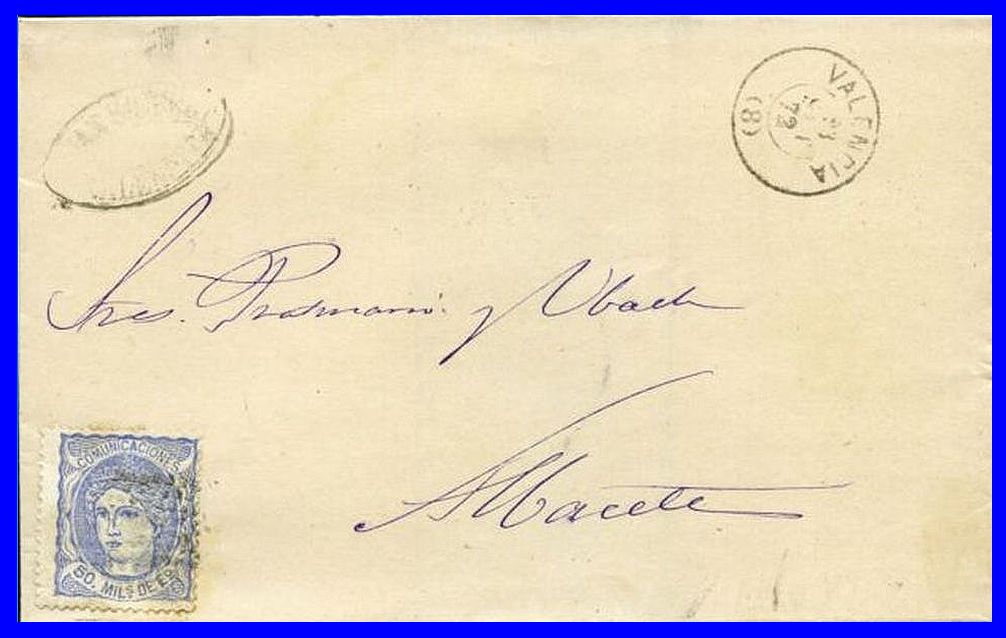 VALENCIA
72
(8)
Sres. Prosmani y Ubach
Albacete
COMUNICACIONES
50. MILS DE E